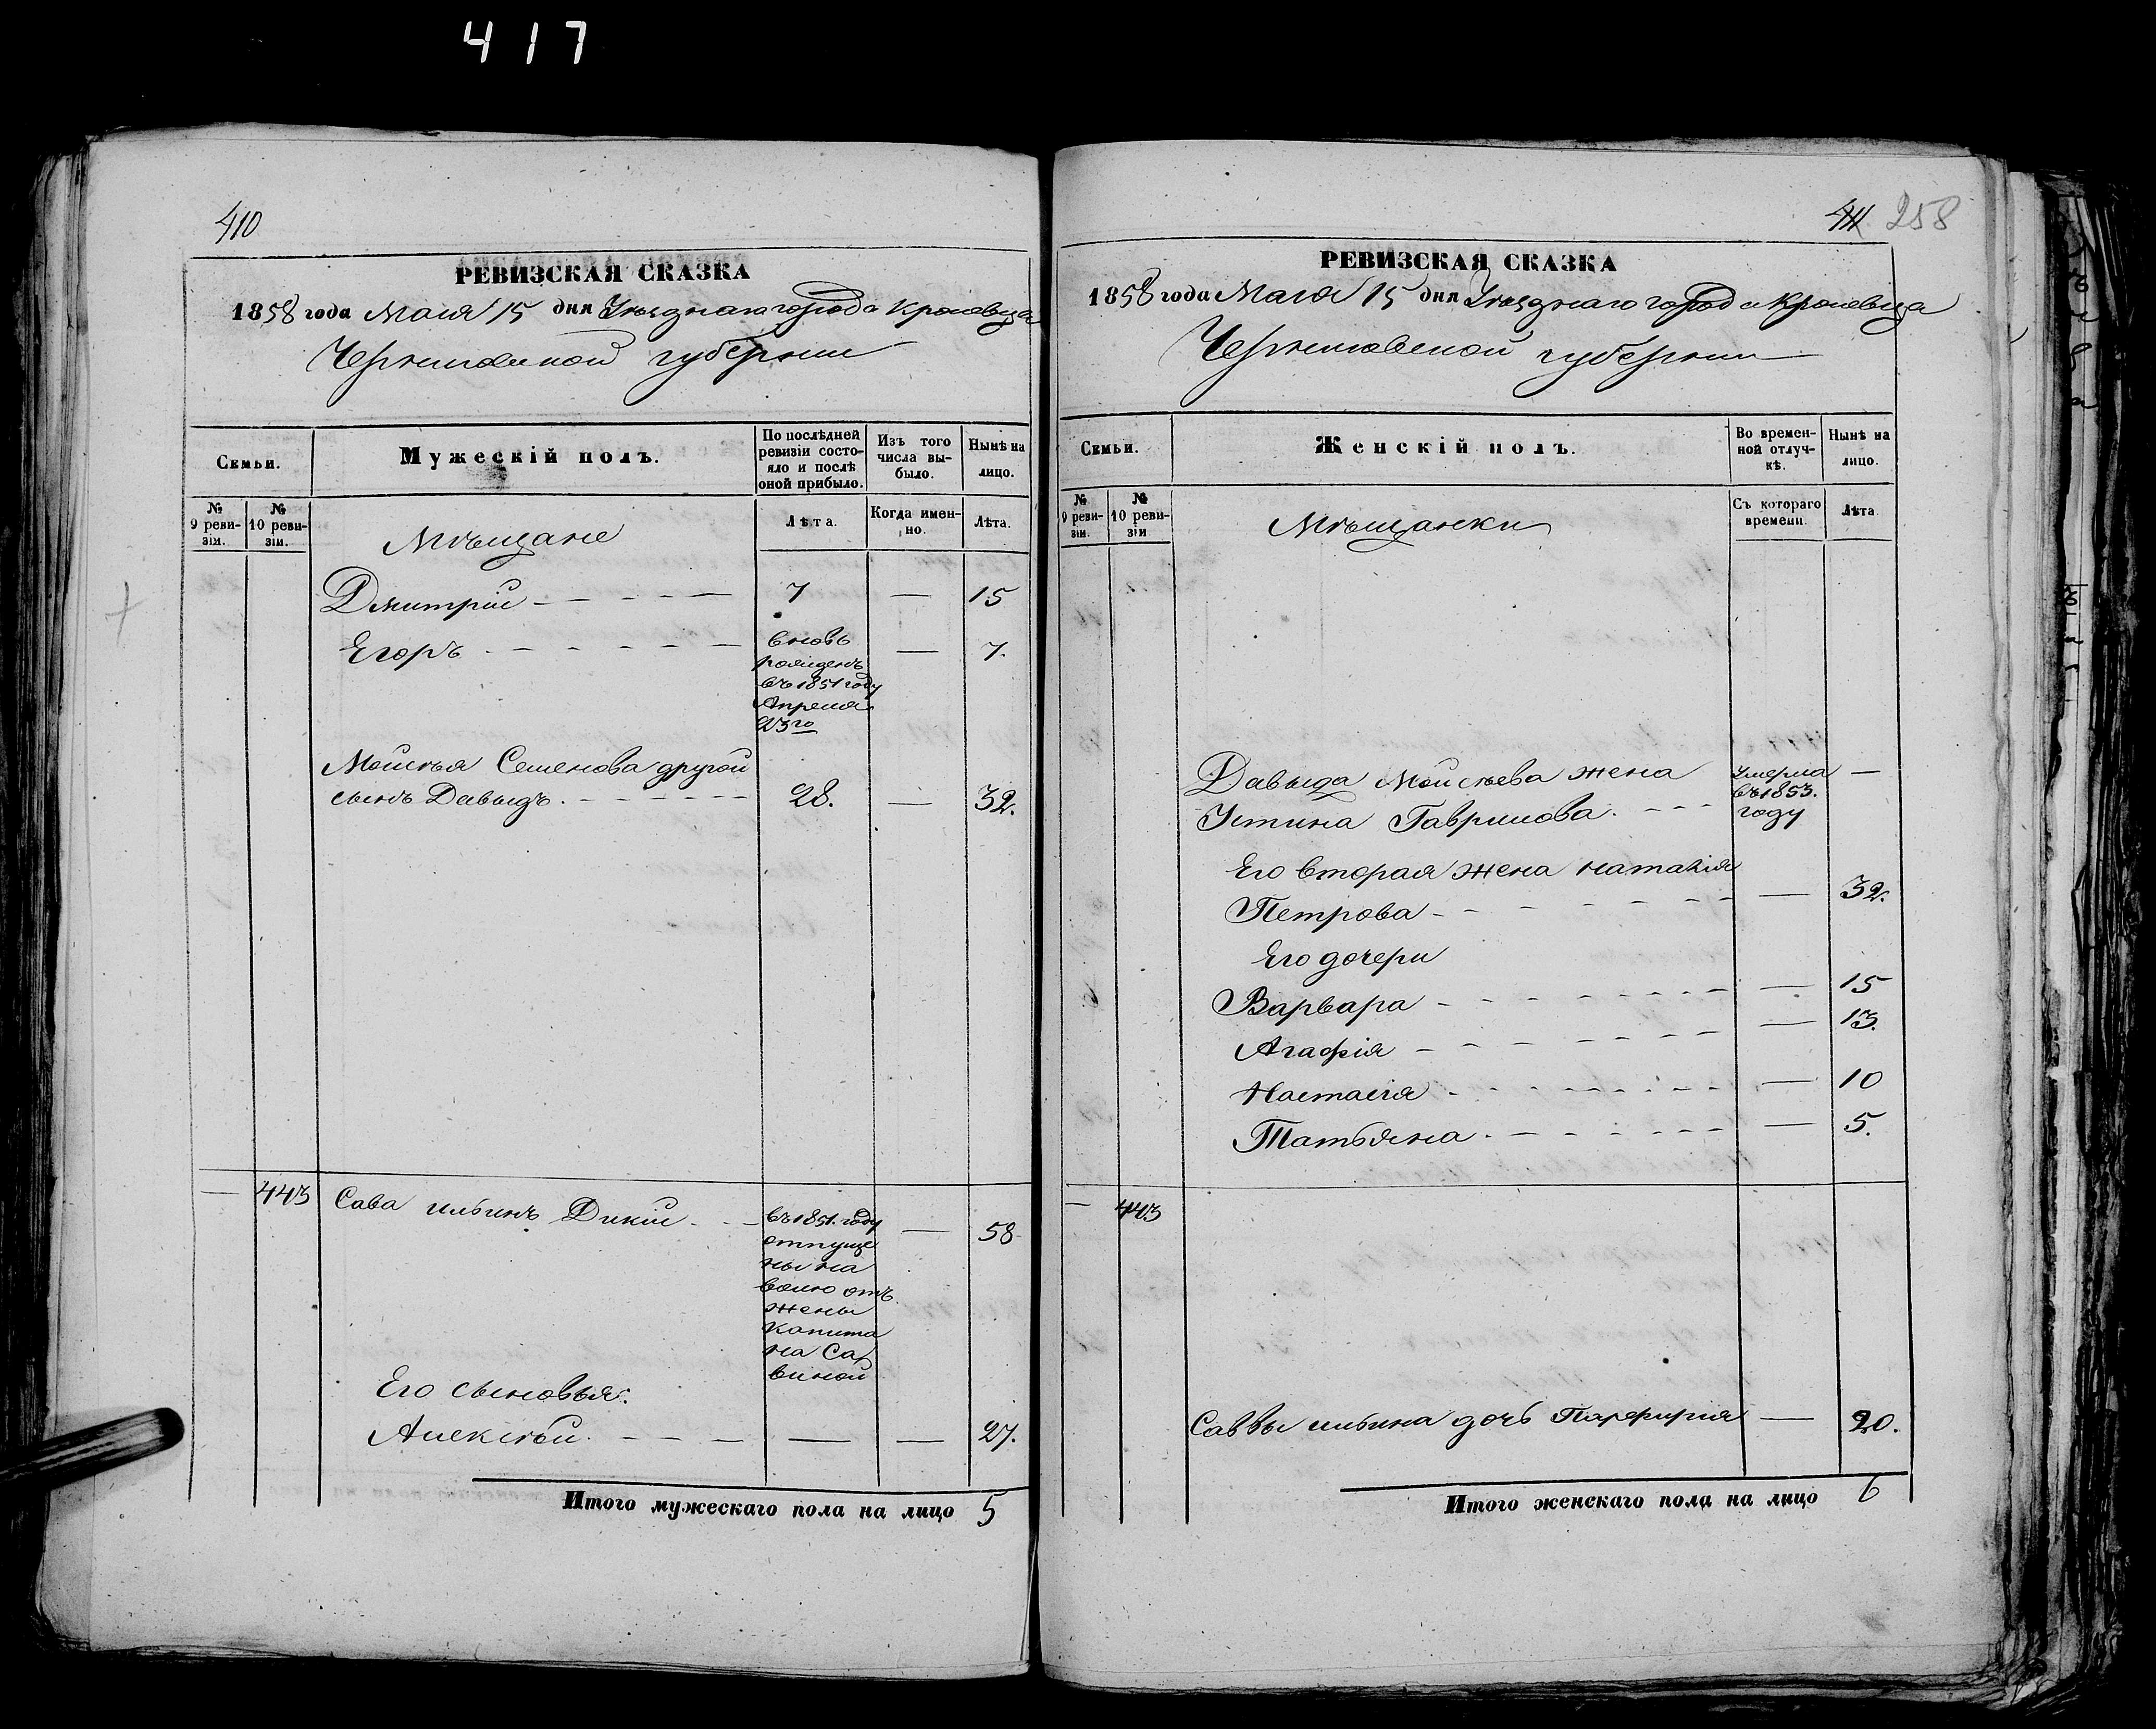 417
410
РЕВИЗСКАЯ СКАЗКА
1858 года Маія 15 дня Уѣзднаго города Кролевца
Черниговской губерніи
Семьи.
Мужескій полъ.
По послѣдней ревизіи состояло и послѣ оной прибыло.
Изъ того числа выбыло.
Нынѣ на лицо.
№ 9 ревизіи.
№ 10 ревизіи.
Мѣщане
Лѣта.
Когда именно.
Лѣта.
Дмитрій - - - - - 7 — 15
Егоръ - - - - - - вновь — 7.
рожденъ
въ 1851 году
Апреля
23го
Мойсѣя Семенова другой
сынъ Давыдъ. - - - - - 28. — 32.
— 443 Сава ильинъ Дикій - - въ 1851. году — 58
отпуще
ны на
волю отъ
жены
Капита
на Са
виной
Его сыновья:
Алексѣй. - - - - — — 27.
Итого мужескаго пола на лицо 5
411 258
РЕВИЗСКАЯ СКАЗКА
1858 года Маія 15 дня Уѣзднаго города Кролевца
Черниговской губерніи
Семьи.
Женскій полъ.
Во временной отлучкѣ.
Нынѣ на лицо.
№ 9 ревизіи.
№ 10 ревизіи
Мѣщанки
Съ котораго времени.
Лѣта.
Давыда Мойсѣева жена умерла —
Устина Гаврилова. - - - въ 1853.
году
Его вторая жена наталія
Петрова - - - - - - - — 32.
Его дочери
Варвара - - - - - - - - — 15
Агафія - - - - - - - — 13.
Настасія - - - - - - - - — 10
Татьяна. - - - - - - - — 5.
— 443
Саввы ильина дочь Парфирія — 20.
Итого женскаго пола на лицо 6